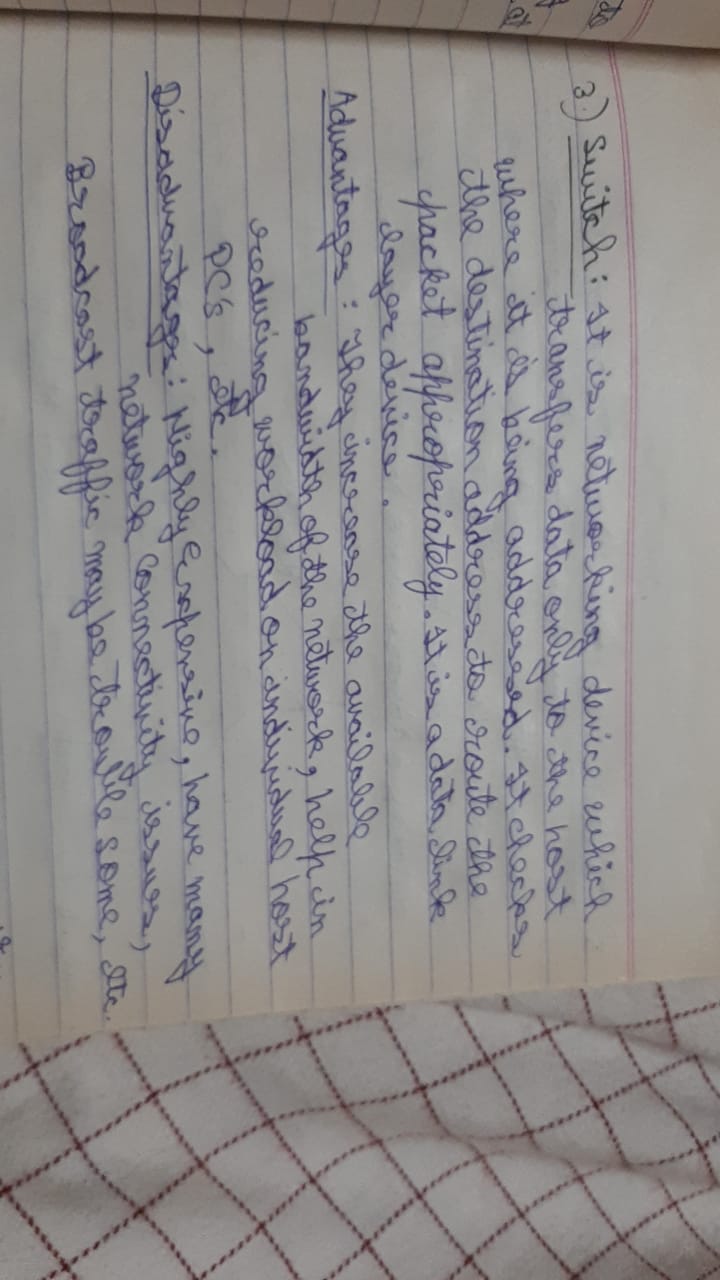 3.) Switch: It is networking device which
transfers data only to the host
where it is being addressed. It checks
the destination address to route the
packet appropriately. It is a data link
layer device.
Advantages: They increase the available
bandwidth of the network, help in
reducing workload on individual host
PC's, etc.
Disadvantages: Highly Expensive, have many
network connectivity issues,
Broadcast traffic may be trouble some, etc.